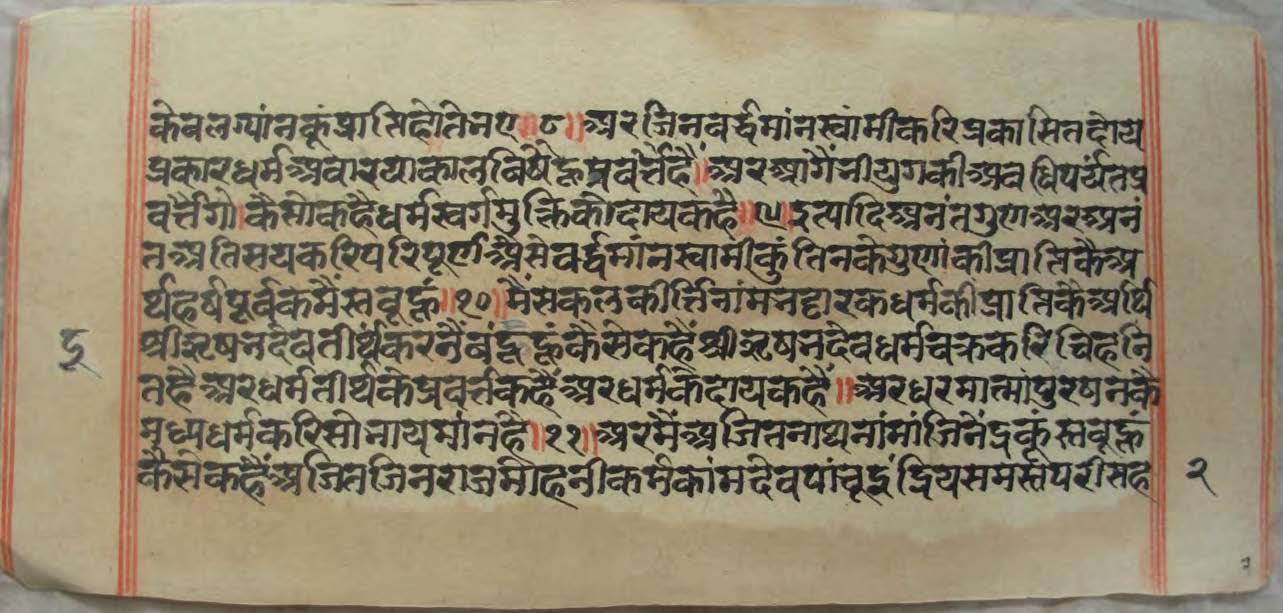 केवलग्यांनकूंप्राप्तिहोतेनए॥८॥अरजिनवर्द्धमांनस्वांमीकरिप्रकासितदोय
प्रकारधर्मअवारयाकालविषैहूप्रवर्त्तैहै॥अरआगैंनीयुगकीअवधिपर्यंतप्र
वर्त्तैगौ।कैसोकहैधर्मस्वर्गमुक्तिकोदायकहै॥९॥इत्यादिअनंतगुणअरअनं
तअतिसयकरिपरिपूर्णअैसेवर्द्धमांनस्वामीकुंतिनकेगुणांकीप्राप्तिकैअ
र्थहर्षपूर्वकमैंस्तवूहूं॥१०॥मैंसकलकीर्त्तिनांमनट्टारकधर्मकीप्राप्तिकैअर्थि
श्रीऋषनदेवतीर्थंकरनैंबंदूहूंकैसेकहैंश्रीऋषनदेवधर्मचक्रकरिचिहनि
तहैअरधर्मतीर्थकेप्रवर्त्तकहैंअरधर्मकेदायकहैं॥अरधरमात्मांपुरषनकै
मध्यधर्मकरिसोनायमांनहै॥११॥अरमैंअजितनाथनांमांजिनेंद्रकूंस्तवूहूं
कैसेकहैंअजितजिनराजमोहनीकर्मकांमदेवपांचूइंद्रियसमस्तपरीसह
२